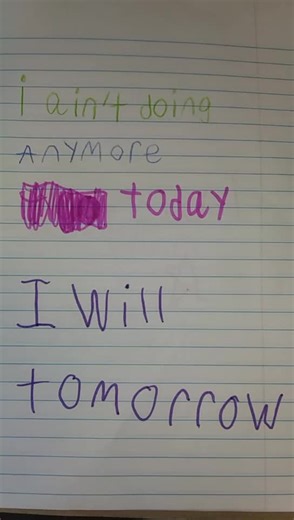 i ain't doing
Anymore
today
I Will
tomorrow